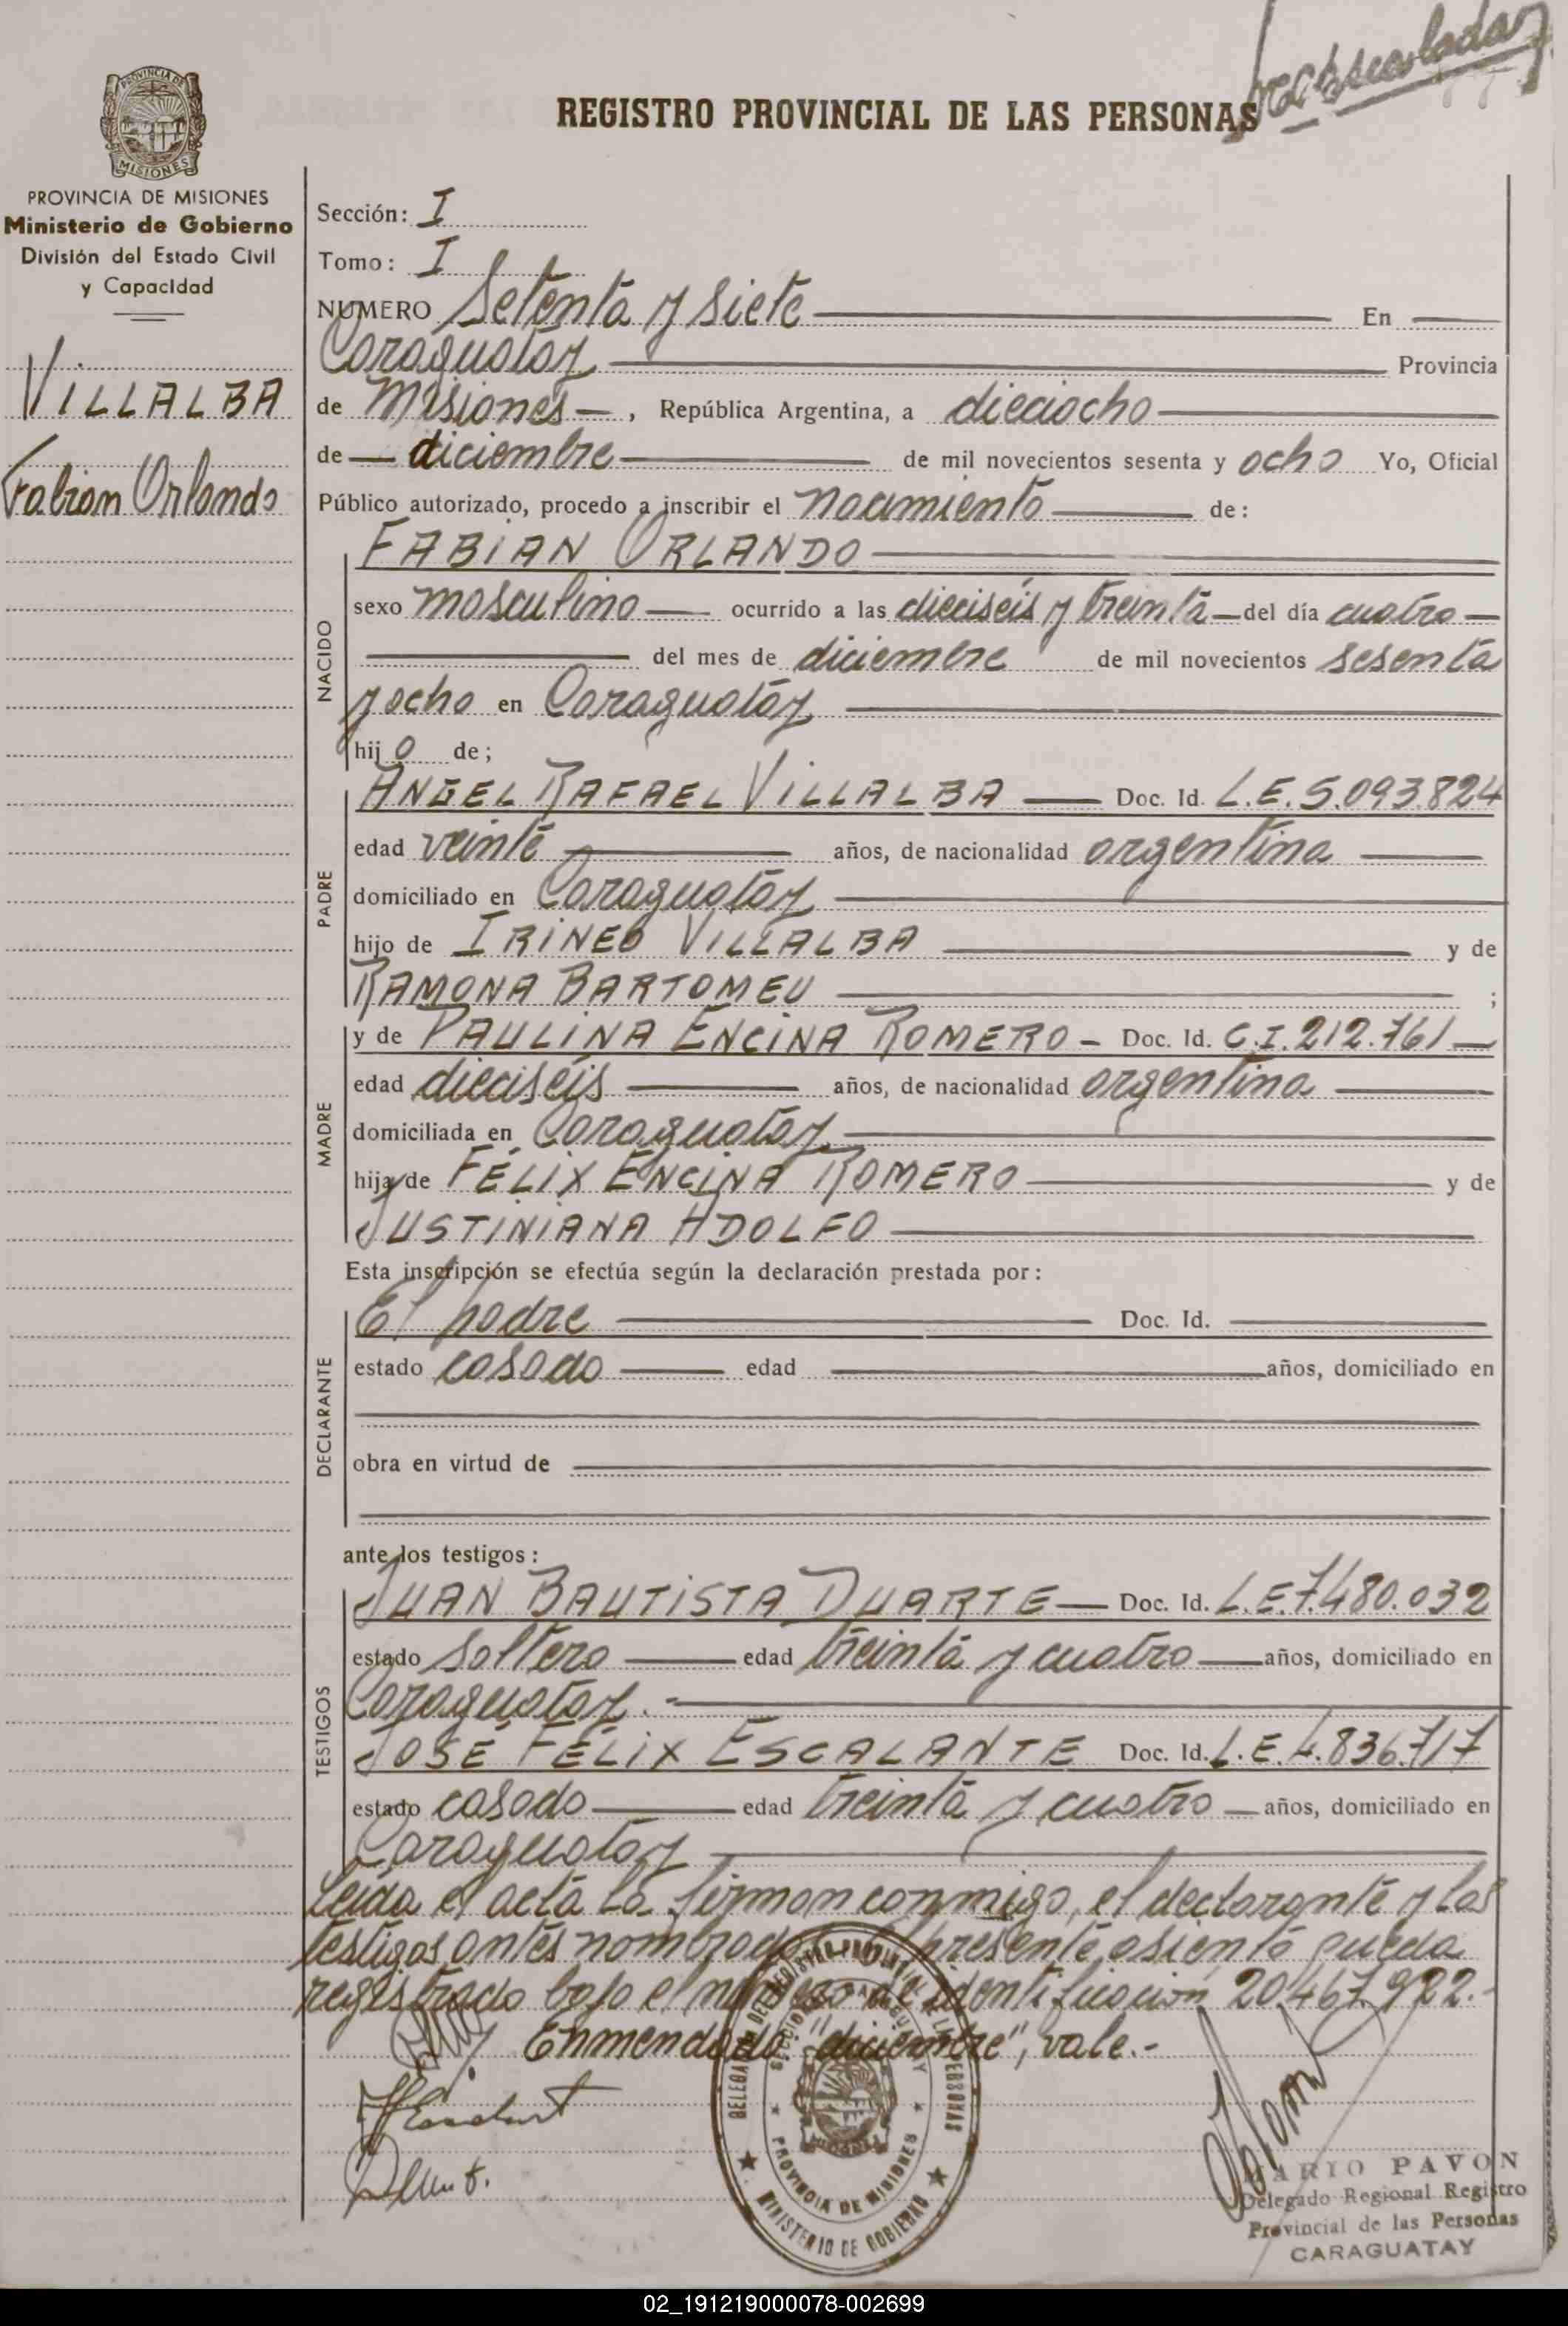 recaratulada
REGISTRO PROVINCIAL DE LAS PERSONAS
PROVINCIA DE
MISIONES
PROVINCIA DE MISIONES
Ministerio de Gobierno
División del Estado Civil
y Capacidad
VILLALBA
Fabian Orlando
Sección: I
Tomo: I
NUMERO Setenta y siete En
Caraguatay Provincia
de Misiones, República Argentina, a dieciocho
de diciembre de mil novecientos sesenta y ocho Yo, Oficial
Público autorizado, procedo a inscribir el nacimiento de:
FABIAN ORLANDO
NACIDO
sexo masculino ocurrido a las dieciséis y treinta del día cuatro
del mes de diciembre de mil novecientos sesenta
y ocho en Caraguatay
hijo de;
PADRE
ANGEL RAFAEL VILLALBA Doc. Id. L.E. 5.093.824
edad veinte años, de nacionalidad argentina
domiciliado en Caraguatay
hijo de IRINEO VILLALBA y de
RAMONA BARTOMEU ;
MADRE
y de PAULINA ENCINA ROMERO - Doc. Id. C.I. 212.761
edad dieciséis años, de nacionalidad argentina
domiciliada en Caraguatay
hija de FÉLIX ENCINA ROMERO y de
JUSTINIANA ADOLFO
Esta inscripción se efectúa según la declaración prestada por:
DECLARANTE
El padre Doc. Id.
estado casado edad años, domiciliado en
obra en virtud de
ante los testigos:
TESTIGOS
JUAN BAUTISTA DUARTE Doc. Id. L.E. 7.480.032
estado soltero edad treinta y cuatro años, domiciliado en
Caraguatay.-
JOSÉ FÉLIX ESCALANTE Doc. Id. L.E. 4.836.717
estado casado edad treinta y cuatro años, domiciliado en
Caraguatay
Leída el acta la firman conmigo, el declarante y los
testigos antes nombrados. El presente asiento queda
registrado bajo el número de identificación 20.467.922.-
Enmendado "diciembre", vale.-
DELEGACION DEL REGISTRO PROVINCIAL DE LAS PERSONAS
SECCION CARAGUAY
PROVINCIA DE MISIONES
MINISTERIO DE GOBIERNO
MARIO PAVON
Delegado Regional Registro
Provincial de las Personas
CARAGUATAY
02_191219000078-002699